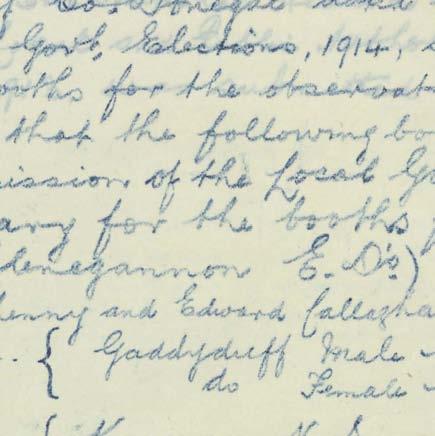 Co. Donegal
Govt, Elections, 1914,
for the observat
that the following bo
ission of the Local Go
ary for the booths
lenegannon E. D's)
enny and Edward Callagha
{ Gaddyduff Male
do Female